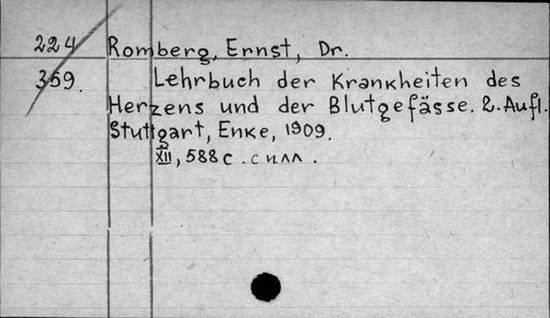 224 Romberg, Ernst, Dr.
359. Lehrbuch der Krankheiten des
Herzens und der Blutgefässe. 2. Aufl.
Stuttgart, Enke, 1909.
XII, 588 с. с илл.